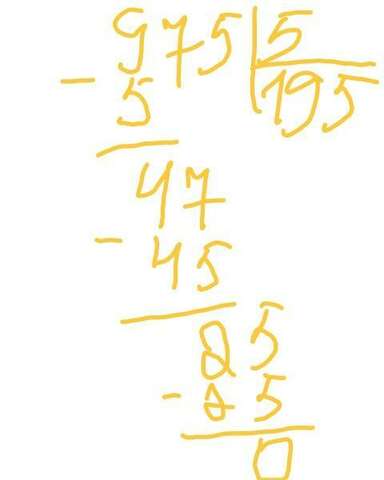 975 5
- 5 195
47
- 45
25
- 25
0